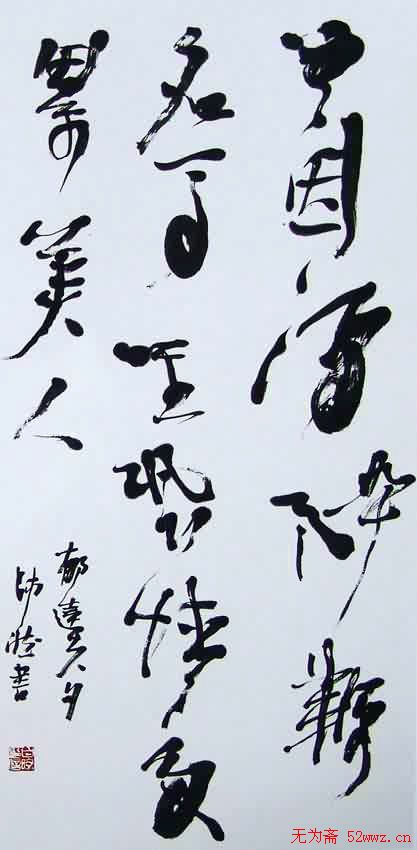 曾因酒醉鞭
名马生恐情多
累美人
郁達夫句
书
无为斋 52wwz.cn